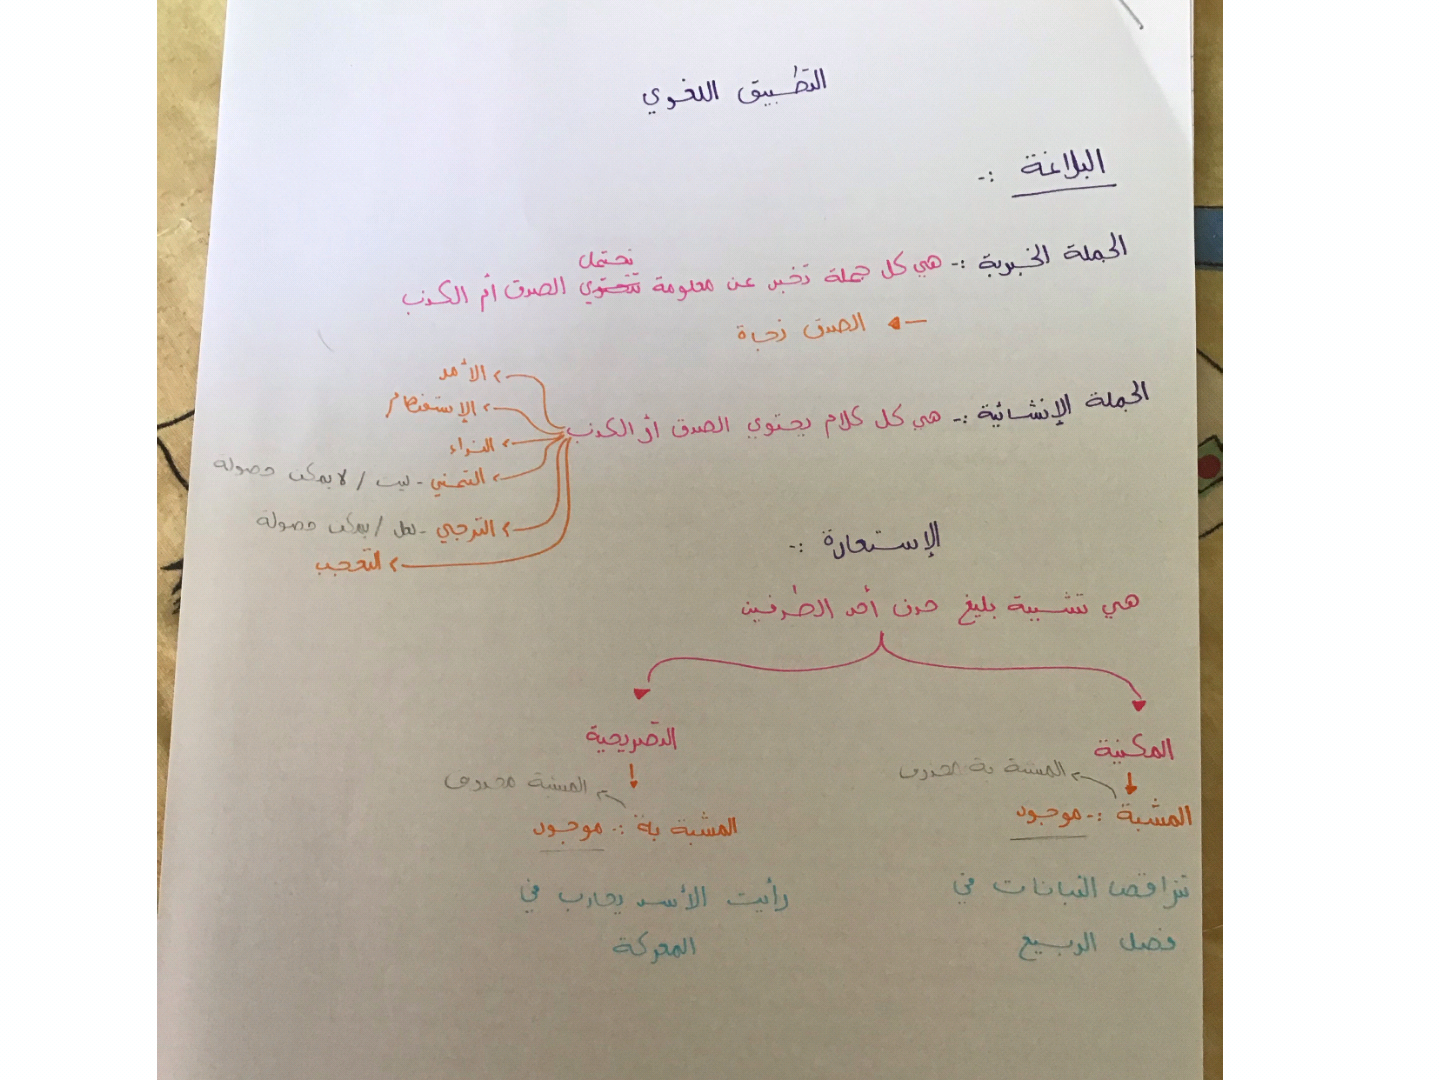 التطبيق اللغوي
البلاغة :-
الجملة الخبرية :- هي كل جملة تخبر عن معلومة تحتوي تحتمل الصدق أم الكذب
الصدق نجاة
الجملة الإنشائية :- هي كل كلام يحتوي الصدق أو الكذب
الأمر
الإستفهام
النداء
التمني - ليت / لا يمكن حصولة
الترجي - لعل / يمكن حصولة
التعجب
الإستعارة :-
هي تشبية بليغ حذف أحد الطرفين
المكنية
المشبة بة محذوف
المشبة :- موجود
تتراقصا النباتات في
فصل الربيع
التصريحية
المشبة محذوف
المشبة بة :- موجود
رأيت الأسد يحارب في
المعركة